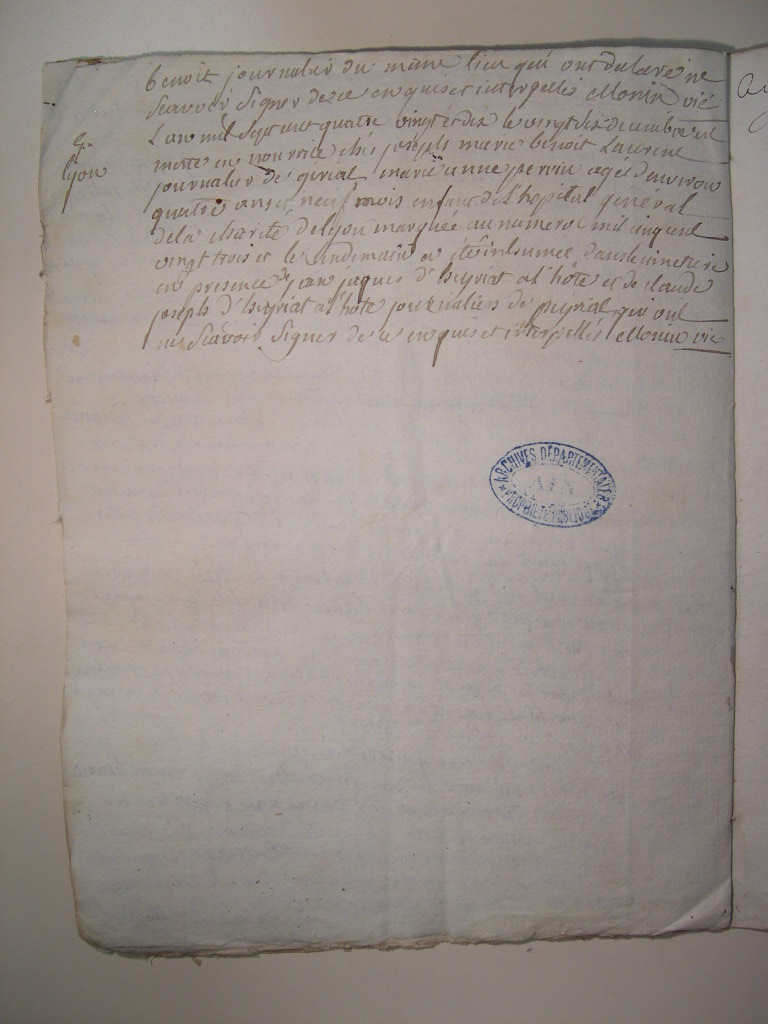 benoit journalier du meme lieu qui ont declaré ne
sçavoir signer de ce enquis et interpellés Monin vic
L'an mil sept cent quatre vingt et dix le vingt dix decembre est
morte en nourrice chés joseph marie benoit Laurent
journalier de marie anne perrin agée d'environ
quatre ans et neuf mois enfant de l'hopital general
de la charité de lyon marquée au numero mil cinq cent
vingt trois et le lendemain a été inhumée dans le cimetiere
en presence de jean jaques d'huyriat a l'hôte et de claude
joseph d'huyriat a l'hôte journaliers de peyriat qui ont
ne sçavoir signer de ce enquis et interpellés Monin vic
lyon
ARCHIVES DÉPARTEMENTALES
AIN
PROPRIÉTÉ PUBLIQUE